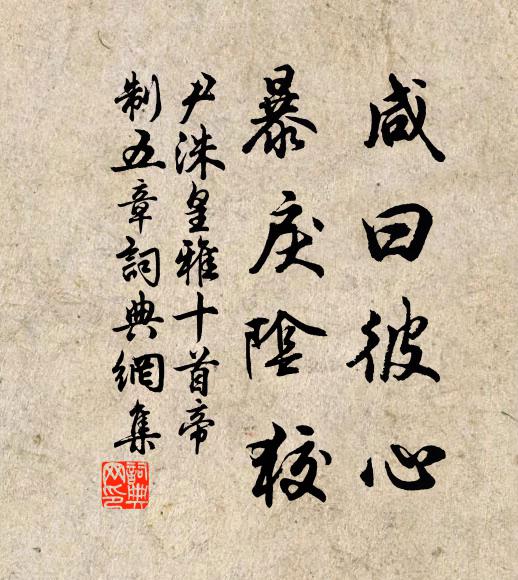 咸曰彼心
暴戾陰狡
尹洙皇雅十首帝
制五章詞典網集
詞典
网印